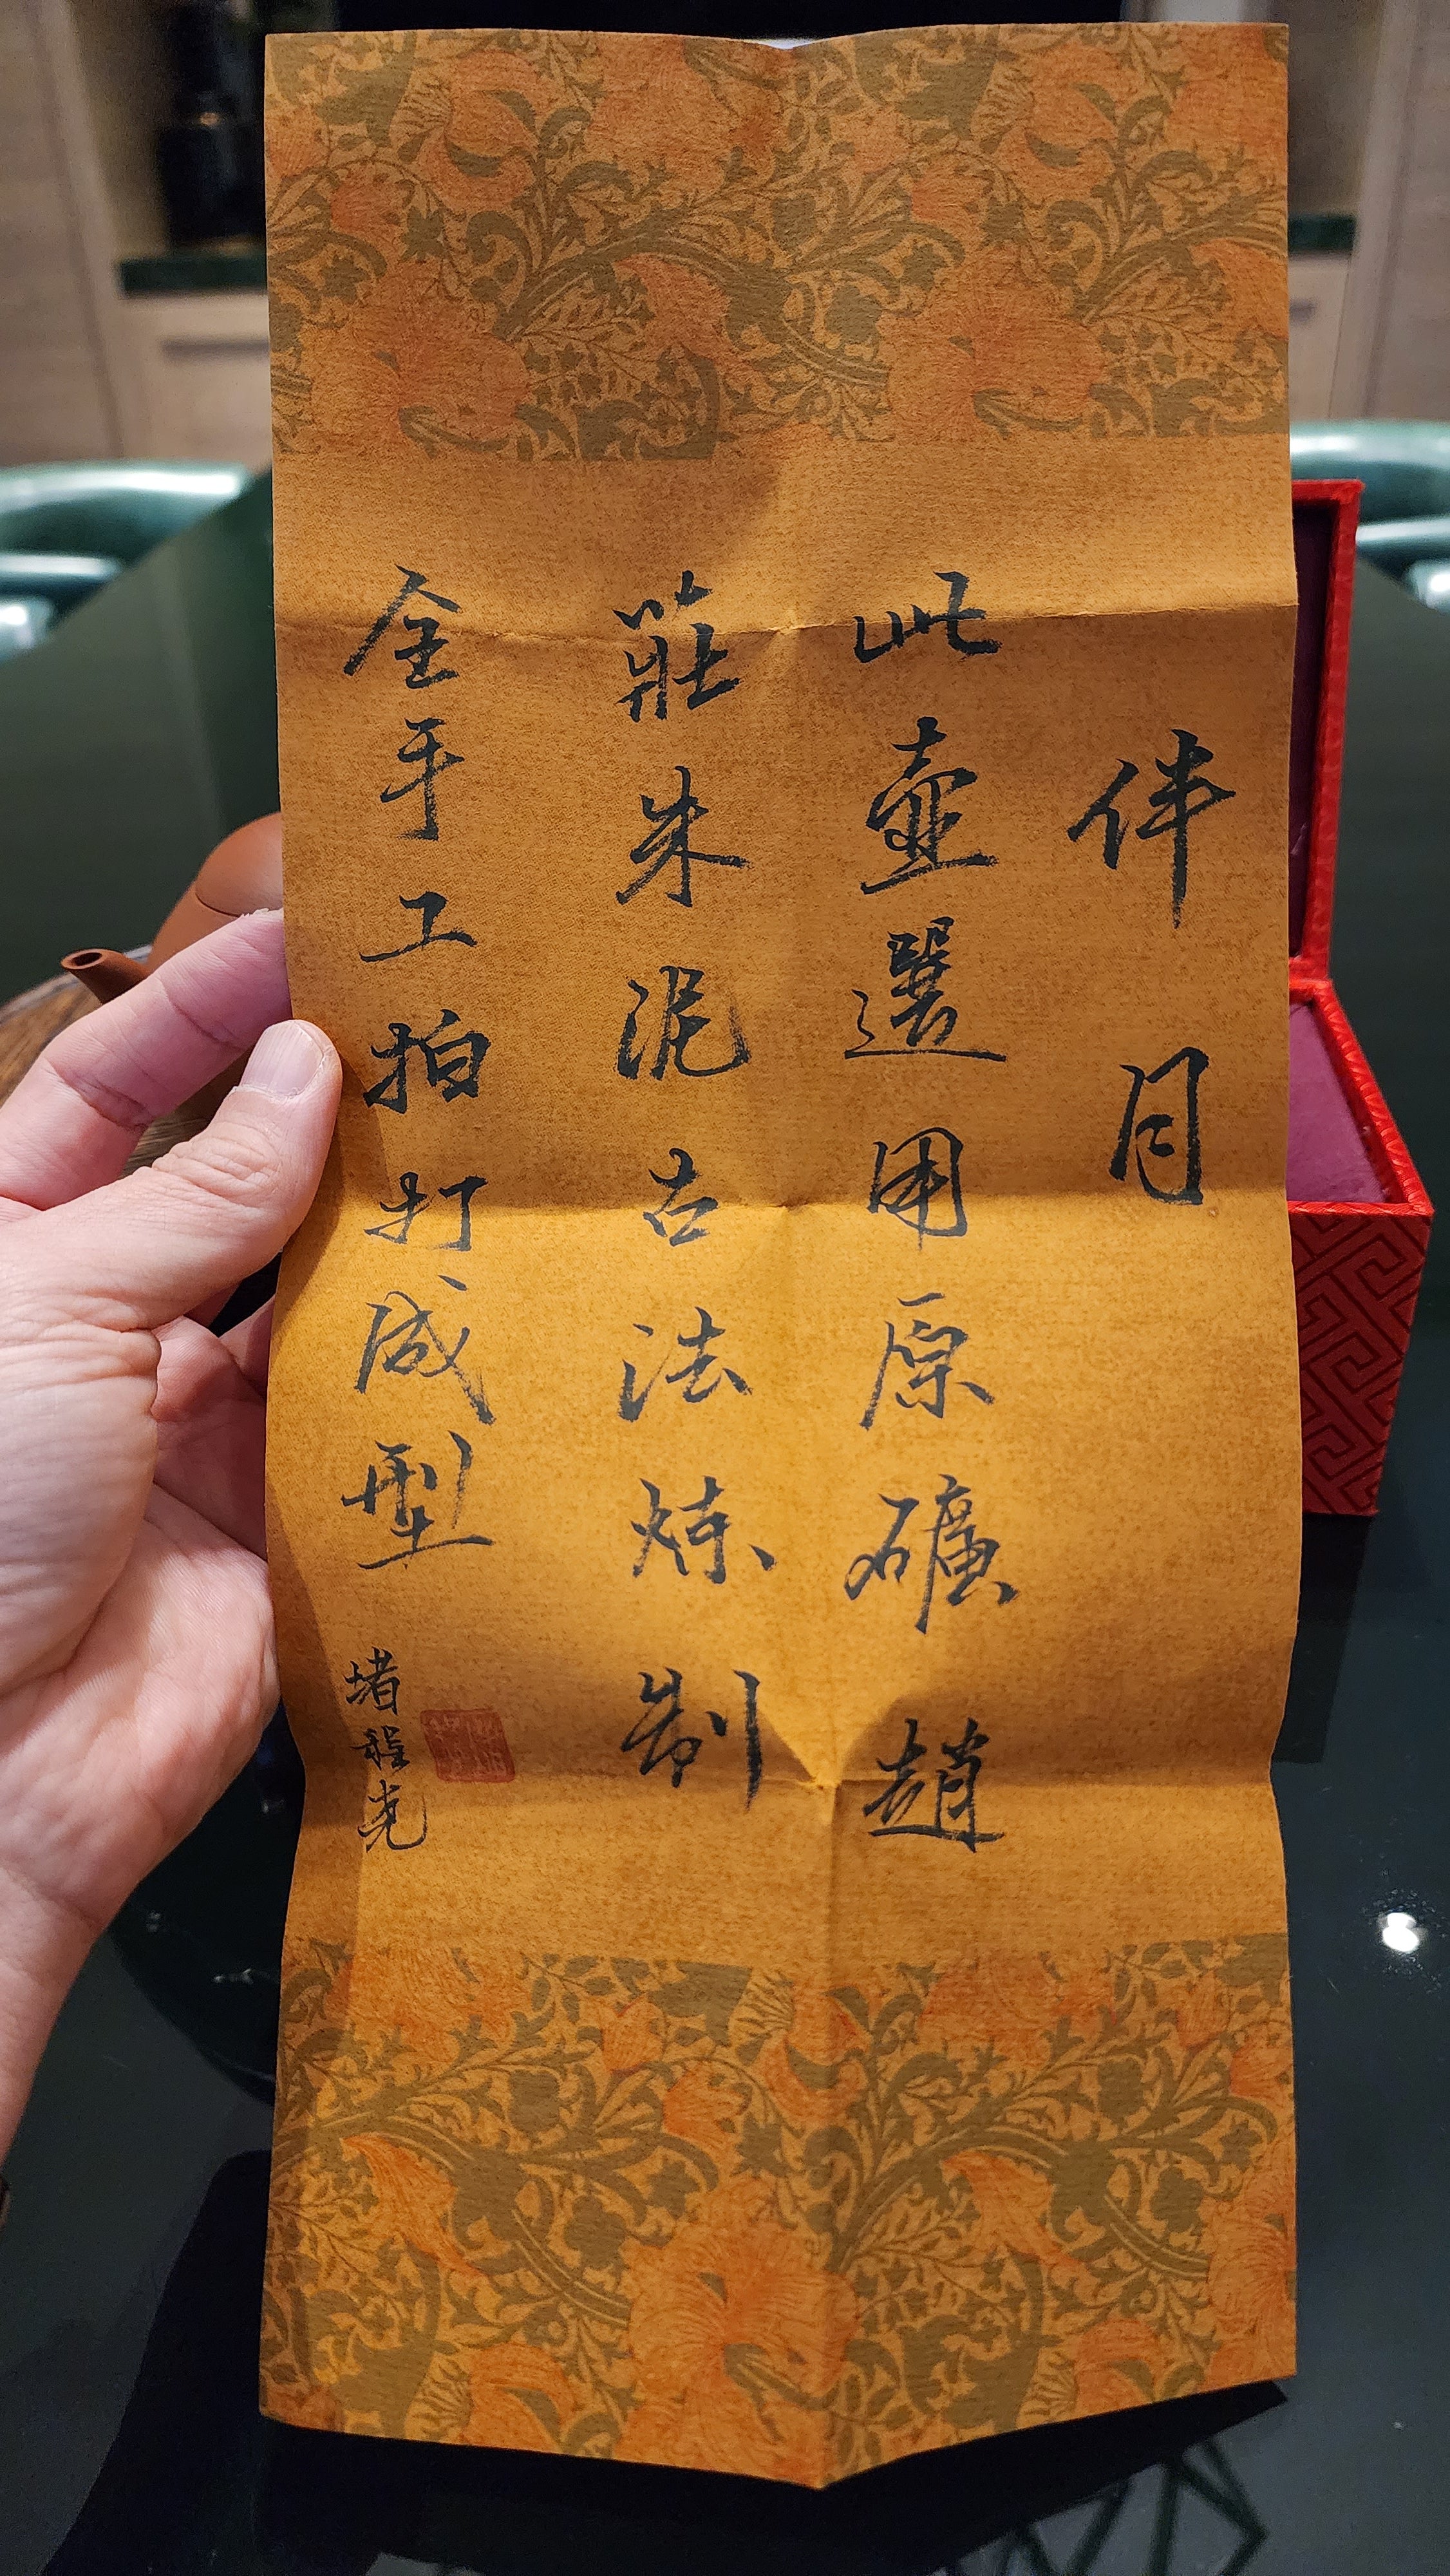 伴月
此壺選用原礦趙
莊朱泥古法煉制
全手工拍打成型
堵程尧